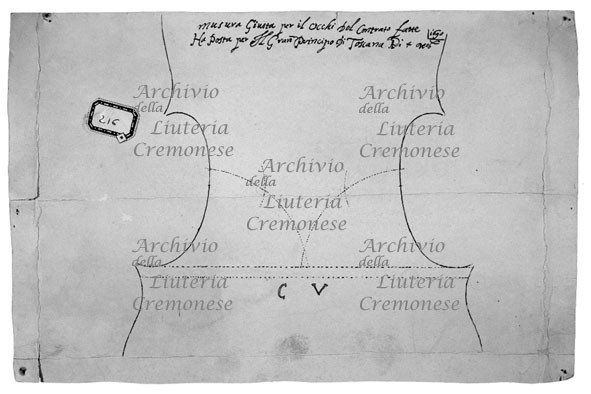 misura Giusta per il occhi del Contrato fatto
Ha Posta per Il Gran Principo di Toscana Di
1690
216
Archivio
della
Liuteria
Cremonese
Archivio
della
Liuteria
Cremonese
Archivio
della
Liuteria
Cremonese
Archivio
della
Liuteria
Cremonese
Archivio
della
Liuteria
Cremonese
C V